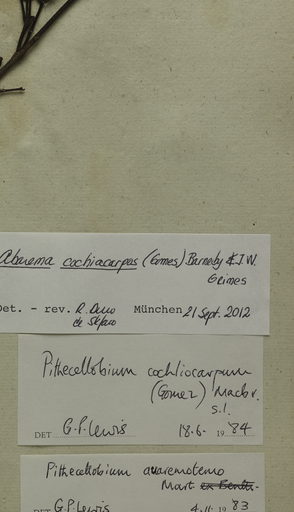 Abarema cochliacarpos (Gomes) Barneby & J.W.
Grimes
Det. - rev. R. Duno München 21 Sept. 2012
de Stefano
Pithecellobium cochliocarpum
(Gomez) Macbr.
s.l.
DET G.P. Lewis 18.6. 1984
Pithecellobium avaremotemo
Mart ex Benth.
DET G.P. Lewis 4.11. 1983